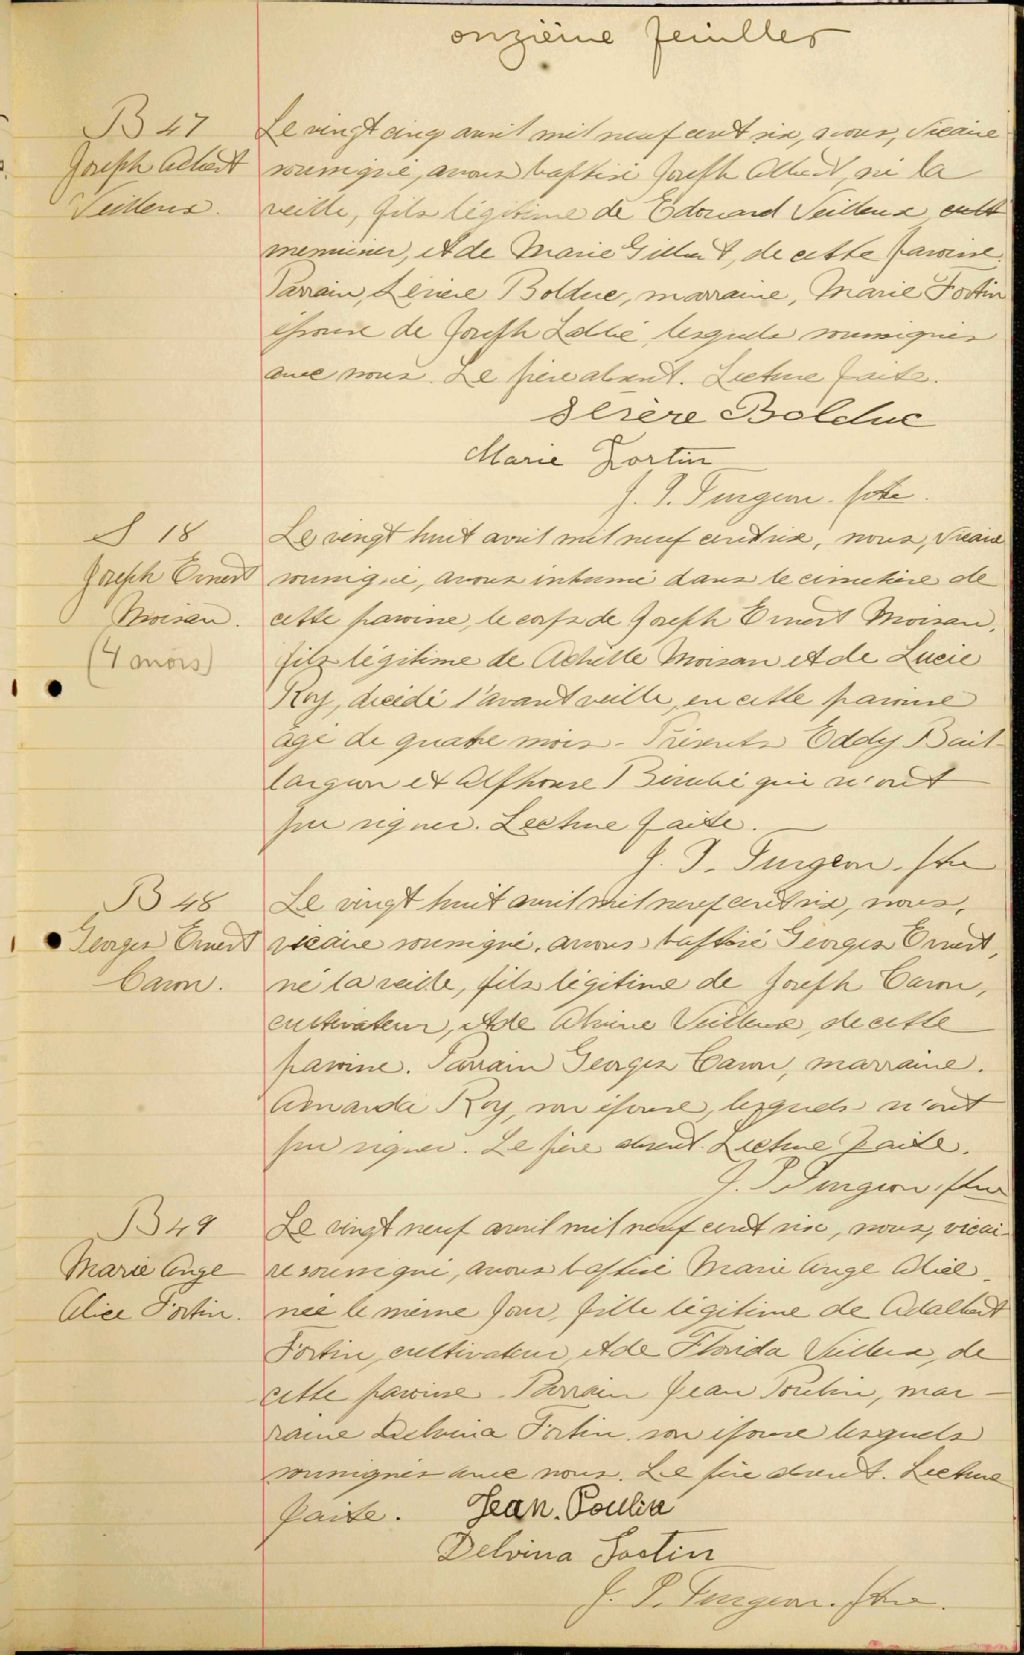 onzième feuillet
B 47
Joseph Albert
Veilleux.
Le vingt cinq avril mil neuf cent six, nous, Vicaire
soussigné, avons baptisé Joseph Albert, né la
veille, fils légitime de Edouard Veilleux
menuisier, et de Marie Gilbert, de cette paroisse.
Parrain, Sévère Bolduc, marraine, Marie Fortin
épouse de Joseph Labbé, lesquels soussignés
avec nous. Le père absent. Lecture faite.
Sévère Bolduc
Marie Fortin
J. P. Turgeon. ptre.
S 18
Joseph Ernest
Moisan.
(4 mois)
Le vingt huit avril mil neuf cent six, nous, Vicaire
soussigné, avons inhumé dans le cimetière de
cette paroisse, le corps de Joseph Ernest Moisan,
fils légitime de Achille Moisan et de Lucie
Roy, décédé l'avant veille, en cette paroisse
âgé de quatre mois - Présents Eddy Bail-
largeon et Alphonse Bérubé qui n'ont
pu signer. Lecture faite.
J. P. Turgeon. ptre
B 48
Georges Ernest
Caron.
Le vingt huit avril mil neuf cent six, nous,
vicaire soussigné, avons baptisé Georges Ernest,
né la veille, fils légitime de Joseph Caron,
cultivateur, et de Alvine Veilleux, de cette
paroisse. Parrain Georges Caron, marraine.
Amanda Roy, son épouse, lesquels n'ont
pu signer. Le père absent. Lecture faite.
J. P. Turgeon. ptre
B 49
Marie Ange
Alice Fortin.
Le vingt neuf avril mil neuf cent six, nous, vicai-
re soussigné, avons baptisé Marie Ange Alice
née le même jour, fille légitime de Adalbert
Fortin, cultivateur, et de Florida Veilleux, de
cette paroisse - Parrain Jean Poulin, mar-
raine Delvina Fortin son épouse lesquels
soussignés avec nous. Le père absent. Lecture
faite. Jean. Poulin
Delvina Fortin
J. P. Turgeon. ptre.